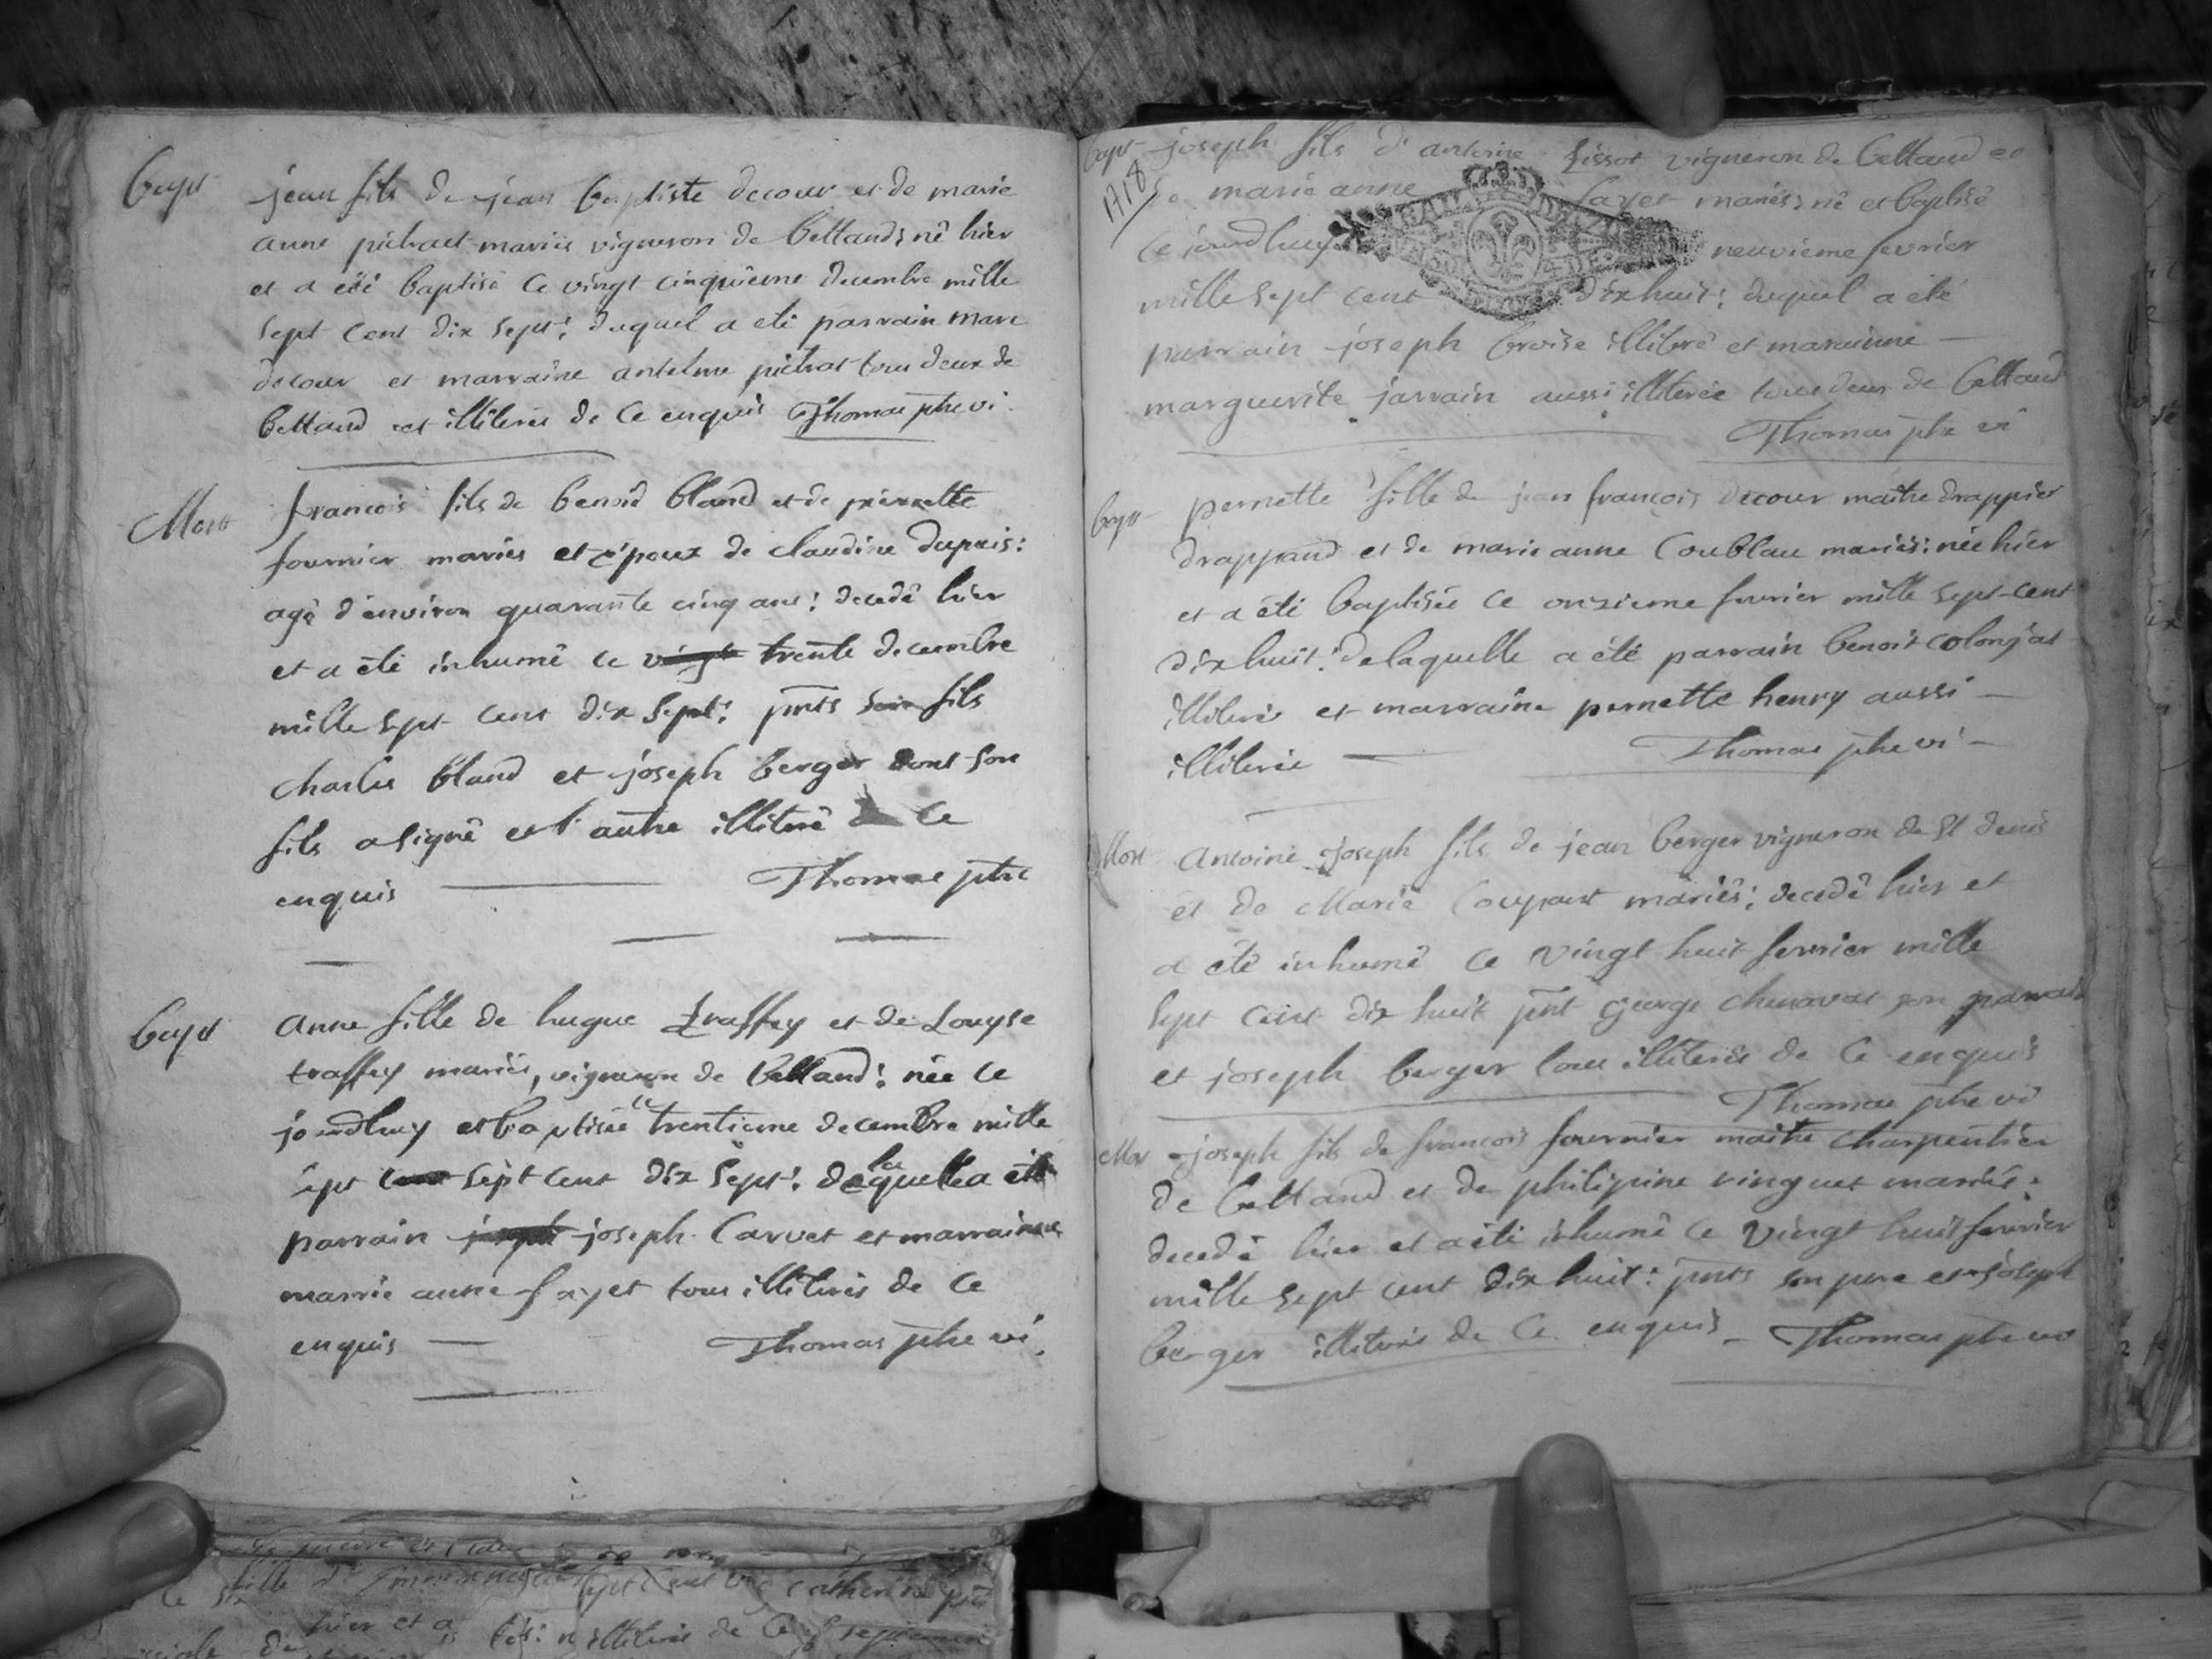 Bapt
jean fils de jean baptiste decour et de marie
anne pichat mariés vigneron de bettand; né hier
et a été baptisé ce vingt cinquième decembre mille
sept cent dix sept; duquel a été parrain marc
decour et marraine antelme pichat tous deux de
bettand et illiterés de ce enquis Thomas ptre vi.
Mort
francois fils de benoid bland et de pierrette
fournier mariés et époux de claudine dupuis:
agé d'environ quarante cinq ans: decedé hier
et a été inhumé ce vingt trente decembre
mille sept cent dix sept; pnts son fils
charles bland et joseph berger dont son
fils a signé et l'autre illiteré de ce
enquis Thomas ptre
Bapt
Anne fille de hugue traffey et de Louyse
traffey mariés, vigneron de bettand; née ce
jourdhuy et baptisée ce trentieme decembre mille
sept cent sept cent dix sept: de laquelle a été
parrain joseph joseph Carvet et marraine
marrie anne fayet tous illiterés de ce
enquis — Thomas ptre vi.
Bapt
1718
joseph fils d'antoine Lissot vigneron de bettand et
de marie anne fayet mariés; né et baptisé
ce jourdhuy neuvième fevrier
mille sept cent dixhuit; duquel a été
parrain joseph broise illiteré et marainne —
marguerite jarrain aussi illiterée tous deux de bettand
Thomas ptre vi
Bapt
pernette fille de jean françois decour maitre drappier
drappand et de marie anne Coublau mariés: née hier
et a été baptisée ce onzieme fevrier mille sept cent
dixhuit: de laquelle a été parrain benoit colonjat
illiteré et marraine pernette henry aussi —
illiterée — Thomas ptre vi —
Mort
Antoine joseph fils de jean berger vigneron de St denis
et de Marie Coupant mariés; decedé hier et
a été inhumé ce vingt huit fevrier mille
sept cent dix huit pnt george chenavat son parrain
et joseph berger tous illiterés de ce enquis
Thomas ptre vi
Mor
joseph fils de francois fournier maitre charpentier
de bettand et de philipine vinguet mariés:
decedé hier et a été inhumé ce vingt huit fevrier
mille sept cent dix huit: pnts son pere et joseph
berger illiterés de ce enquis — Thomas ptre vi
fille
sept cent catherine
hier et a
illiterés de ce